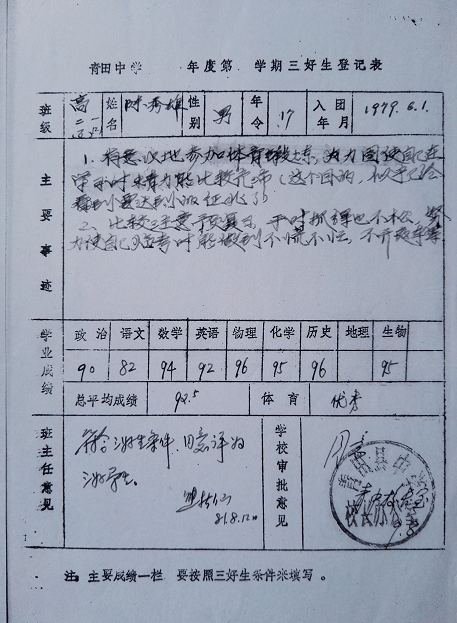 青田中学 年度第 学期三好生登记表
班级 高二 姓名 陈秀雄 性别 男 年令 17 入团年月 1979.6.1.
主要事迹
1. 有意义地参加体育锻炼,力
学习时精力能比较充沛(这个目的,
看到要达到的征兆了)
2. 比较注意预复习,平时抓得也不松,
力使自己应考时能做到不慌不忙,不开夜车等
学业成绩
政治 语文 数学 英语 物理 化学 历史 地理 生物
90 82 94 92 96 95 96 95
总平均成绩 92.5 体育 优秀
班主任意见
符合三好生条件,同意评为
三好学生。
81.8.12
学校审批意见
同意
青田县中学
校长办公室
注:主要成绩一栏 要按照三好生条件来填写。